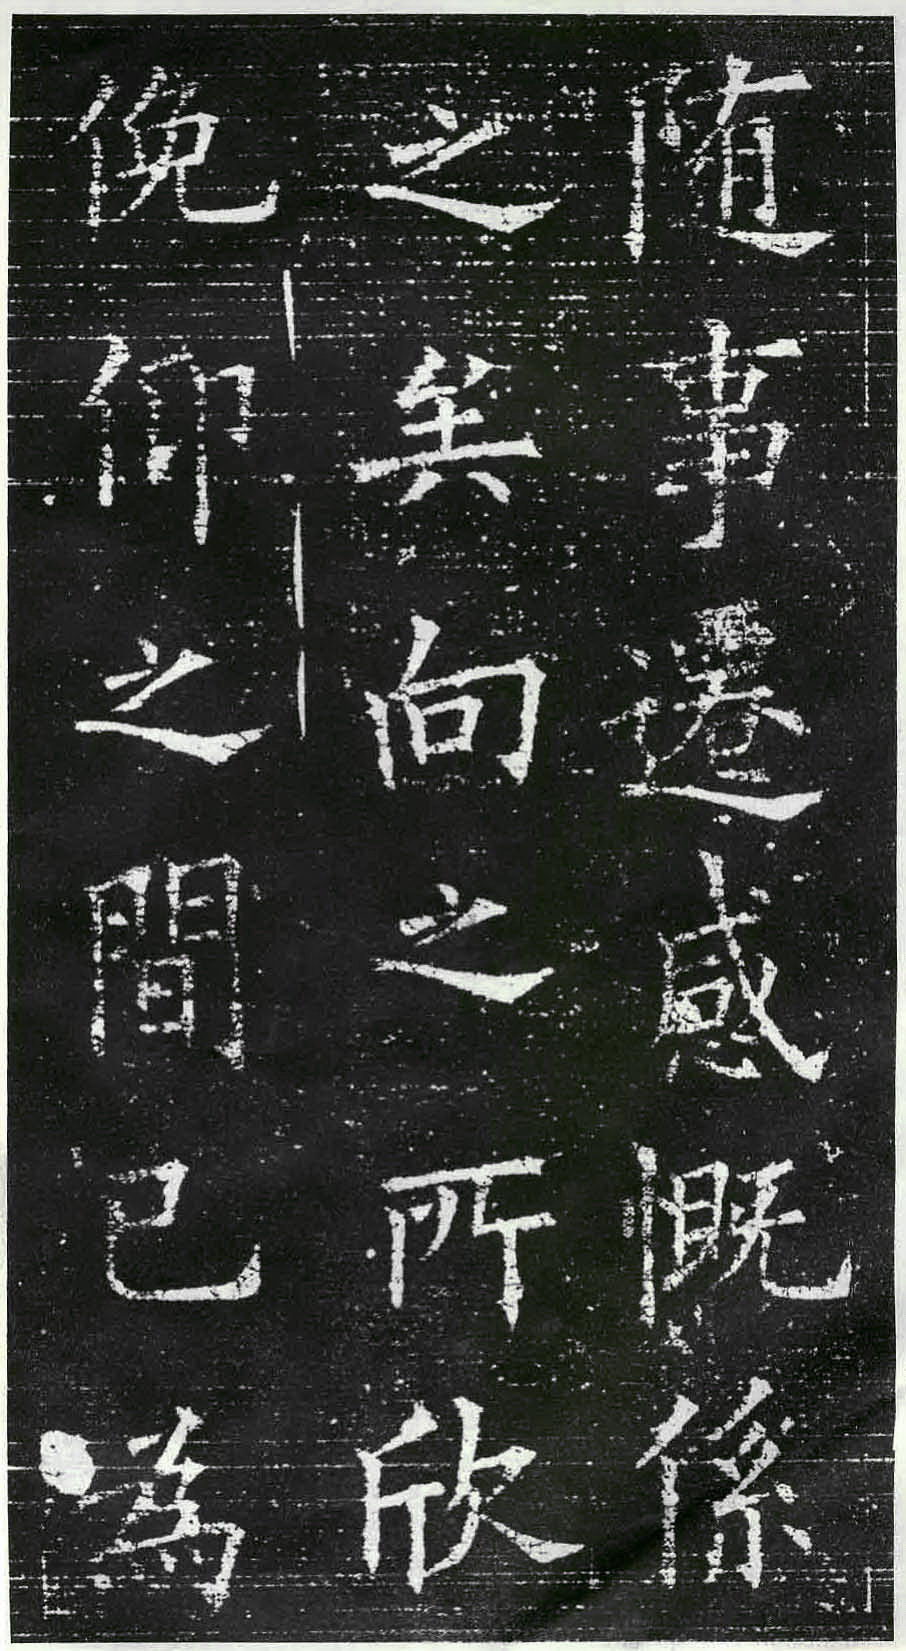 随事遷感慨係
之矣向之所欣
俛仰之間已為